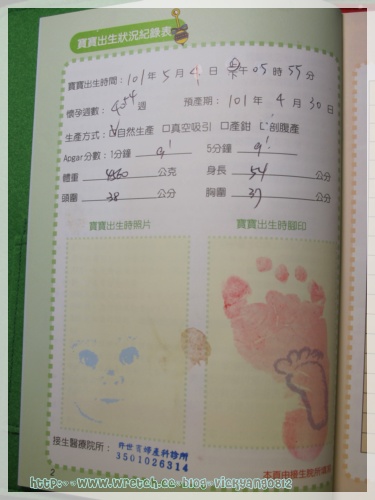 寶寶出生狀況紀錄表
寶寶出生時間：101年5月4日 上下午05時55分
懷孕週數： 週 預產期：101年4月30日
生產方式：□自然生產 □真空吸引 □產鉗 □剖腹產
Apgar分數：1分鐘 9! 5分鐘 9!
體重 4860 公克 身長 54 公分
頭圍 38 公分 胸圍 37 公分
寶寶出生時照片 寶寶出生時腳印
接生醫療院所：
婦產科診所
3501026314
2
本頁由接生院所填寫
http://www.wretch.cc/blog/vickyang0812